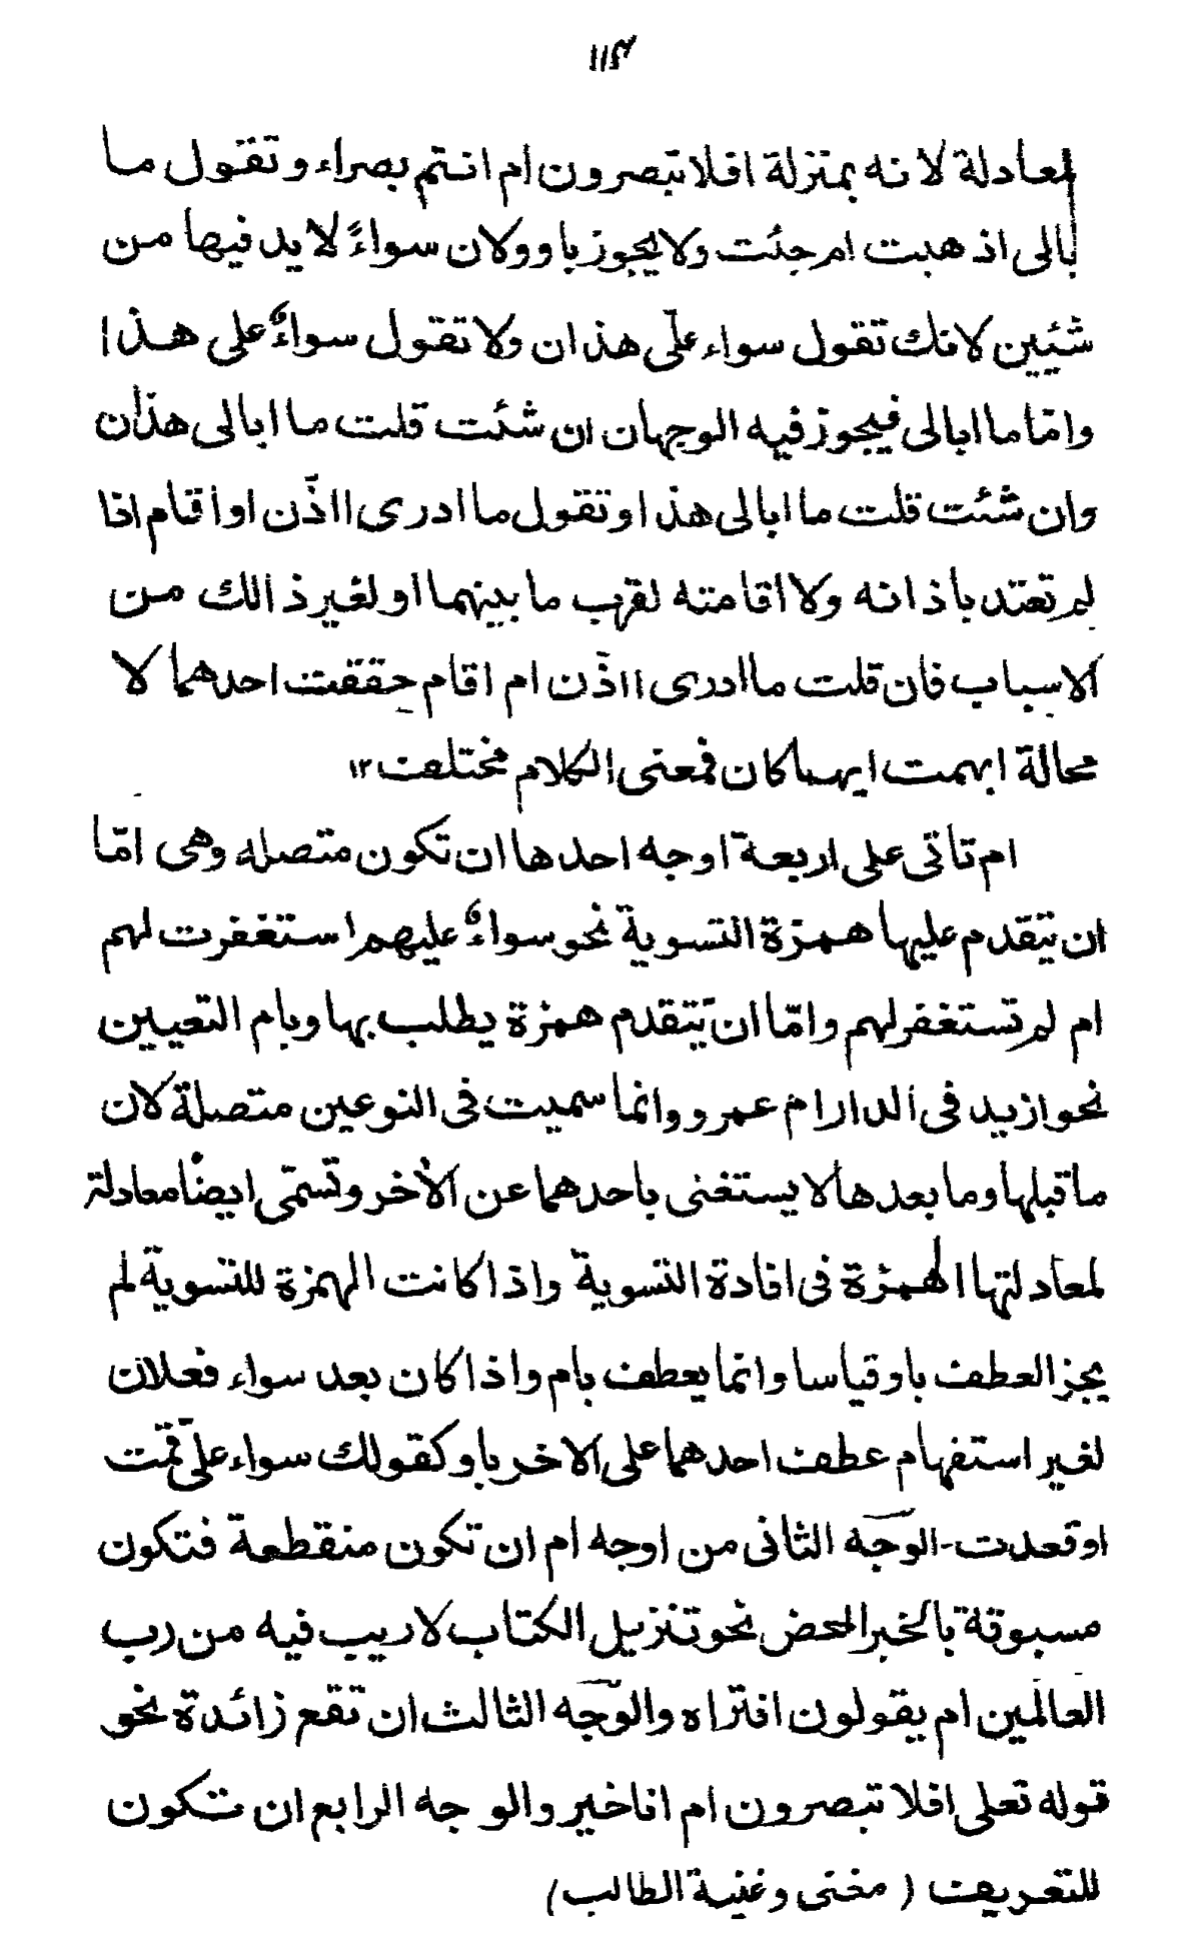 ١١٣
لمعادلة لانه بمنزلة افلا تبصرون ام انتم بصراء وتقول ما
ابالى اذهبت ام جئت ولا يجوز باو ولان سواءً لا يد فيها من
شيئين لانك تقول سواء علىّ هذان ولا تقول سواءٌ على هذا
وامّا ما ابالى فيجوز فيه الوجهان ان شئت قلت ما ابالى هذان
وان شئت قلت ما ابالى هذا وتقول ما ادرى ااذّن او اقام اذا
لم تعتد باذانه ولا اقامته لقرب ما بينهما او لغير ذالك من
الاسباب فان قلت ما ادرى ااذّن ام اقام حققت احدهما لا
محالة ابهمت ايهما كان فمعنى الكلام مختلف ١٢
ام تاتى على اربعة اوجه احدها ان تكون متصله وهى امّا
ان يتقدم عليها همزة التسوية نحو سواءٌ عليهم استغفرت لهم
ام لم تستغفر لهم وامّا ان يتقدم همزة يطلب بها وبام التعيين
نحو ازيد فى الدار ام عمرو وانما سميت فى النوعين متصلة لان
ما قبلها وما بعدها لا يستغنى باحدهما عن الأخر وتسمّى ايضًا معادلة
لمعادلتها الهمزة فى افادة التسوية واذا كانت الهمزة للتسوية لم
يجز العطف باو قياسا وانما يعطف بام واذا كان بعد سواء فعلان
لغير استفهام عطف احدهما على الاخر باو كقولك سواء علىّ قمت
او قعدت - الوجه الثانى من اوجه ام ان تكون منقطعة فتكون
مسبوقة بالخبر المحض نحو تنزيل الكتاب لاريب فيه من رب
العالمين ام يقولون افتراه والوجه الثالث ان تقع زائدة نحو
قوله تعلى افلا تبصرون ام انا خير والوجه الرابع ان تكون
للتعريف (مغنى وغنية الطالب)